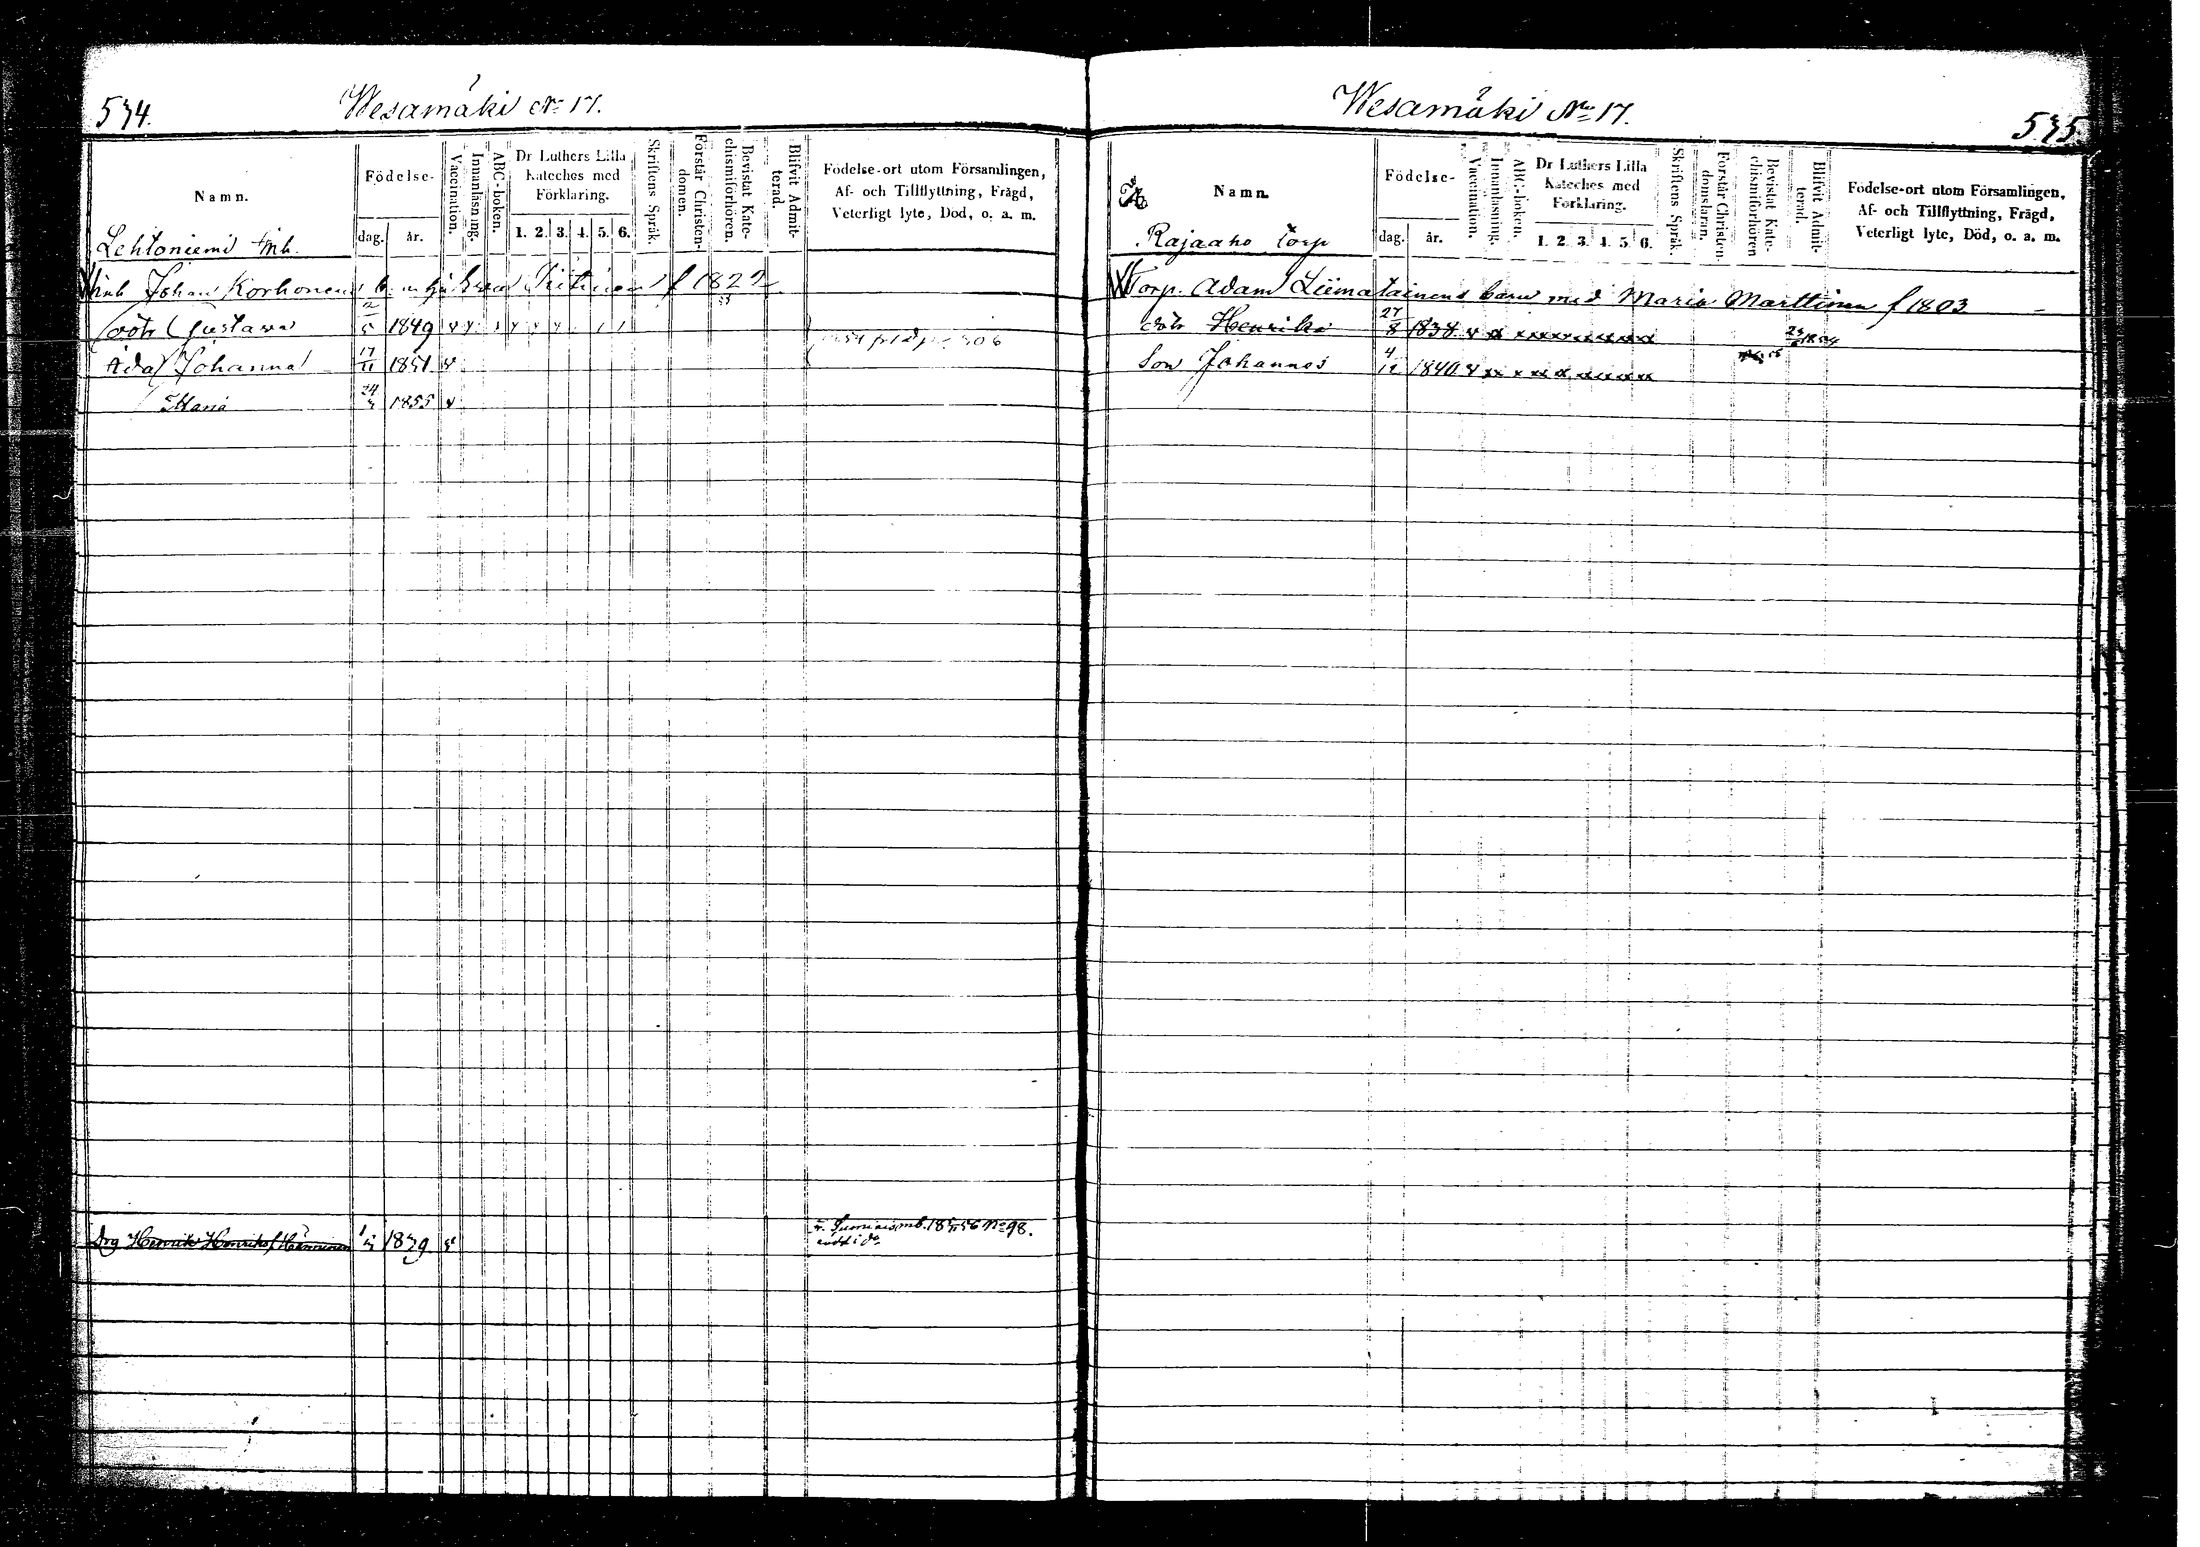 534.
Wesamäki No 17.
Namn.
Födelse-
dag. år.
Vaccination.
Innanläsning.
ABC-boken.
Dr Luthers Lilla
Kateches med
Förklaring.
1. 2. 3. 4. 5. 6.
Skriftens Språk.
Förstår Christen-
domen.
Bevistat Kate-
chismiförhören.
Blifvit Admit-
terad.
Födelse-ort utom Församlingen,
Af- och Tillflyttning, Frägd,
Veterligt lyte, Död, o. a. m.
Lehtoniemi Inh.
Inh Johan Korhonens b. m f 1822
dotr Gustava 2/5 1849
Ada Johanna 17/11 1851
Maria 24 1855
Drg Henrik Henriksf Hänninen 1839
No 98.
Wesamäki No 17.
535
Namn.
Födelse-
dag. år.
Vaccination.
Innanläsning.
ABC-boken.
Dr Luthers Lilla
Kateches med
Förklaring.
1. 2. 3. 4. 5. 6.
Skriftens Språk.
Förstår Christen-
domsläran.
Bevistat Kate-
chismiförhören
Blifvit Admit-
terad.
Födelse-ort utom Församlingen,
Af- och Tillflyttning, Frägd,
Veterligt lyte, Död, o. a. m.
Rajaaho Torp
Torp. Adam Liimatainens barn med Maria Marttinen f 1803
dotr Henrika 27/8 1838
Son Johannes 4/12 1840